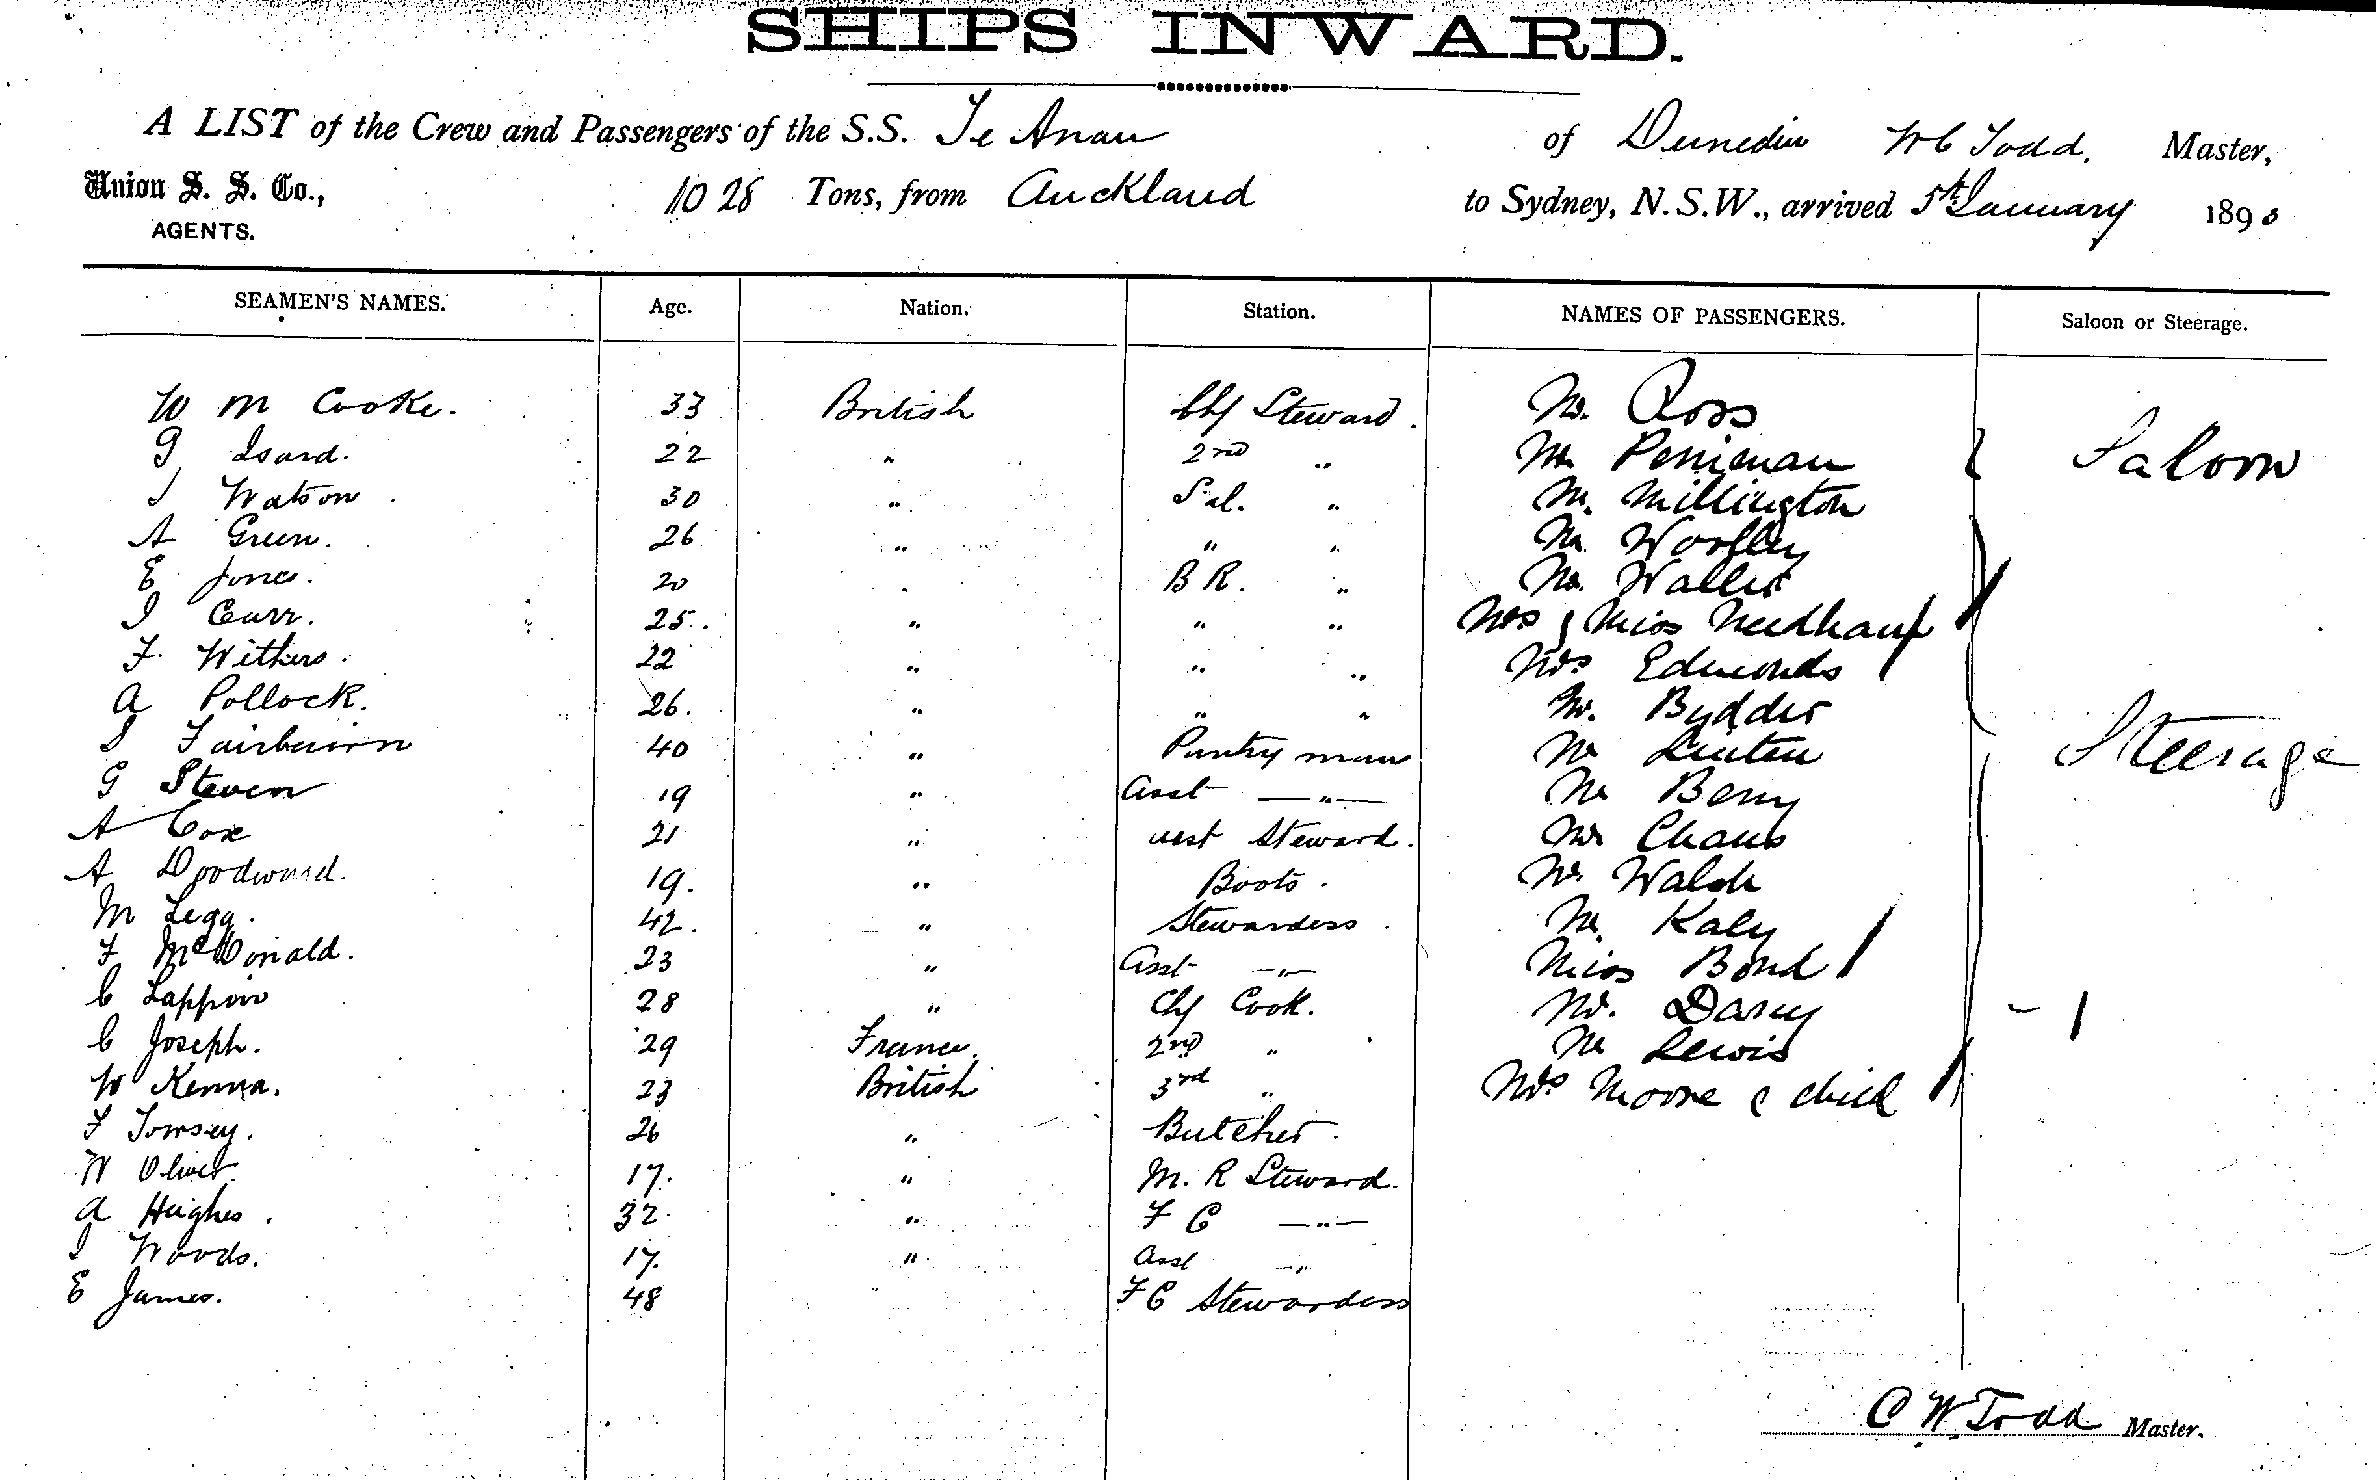 SHIPS INWARD.
A LIST of the Crew and Passengers of the S.S. Te Anau of Dunedin W C Todd. Master,
Union S. S. Co., 1028 Tons, from Auckland to Sydney, N.S.W., arrived 5th January 1890
AGENTS.
SEAMEN'S NAMES. Age. Nation. Station. NAMES OF PASSENGERS. Saloon or Steerage.
W M Cooke. 33 British Chf Steward. Mr. Ross
G Isard. 22 " 2nd " Mr Peniman Saloon
J Watson 30 " Sal. " Mr. Millington
A Green. 26 " " " Mr Woolley
E Jones. 20 " B R. " Mr. Wallis
J Carr. 25. " " " Mrs & Miss Needham
F. Withers. 22 " " " Mrs Edmonds
A Pollock. 26. " " " Mr. Bydder
S Fairbairn 40 " Pantry man Mr Linten Steerage
G Steven 19 " Asst — " — Mr Berry
A Cox 21 " asst Steward. Mr Chaus
A Woodward. 19. " Boots. Mr. Walsh
M Legg. 42. " Stewardess. Mr. Kaly
F McDonald. 23 " Asst — " — Miss Bond
C Lappin 28 " Chf Cook. Mr. Darcy - 1
C Joseph. 29 France. 2nd " Mr Lewis
W Kenna. 23 British 3rd " Mrs Moore & child
F Towsey. 26 " Butcher.
W Oliver. 17. " M. R Steward.
A Hughes. 32. " F C — " —
J Woods. 17. " Asst — " —
E James. 48 F C Stewardess
C W Todd Master.